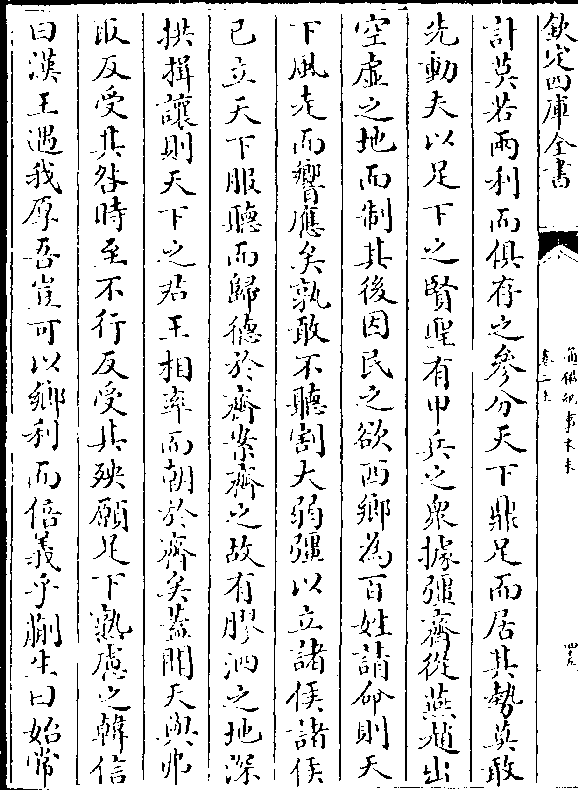 欽定四庫全書
計莫若兩利而俱存之參分天下鼎足而居其勢莫敢
先動夫以足下之賢聖有甲兵之衆據彊齊從燕趙出
空虛之地而制其後因民之欲西鄉為百姓請命則天
下風走而響應矣孰敢不聽割大弱彊以立諸侯諸侯
已立天下服聽而歸德於齊案齊之故有膠泗之地深
拱揖讓則天下之君王相率而朝於齊矣蓋聞天與弗
取反受其咎時至不行反受其殃願足下孰慮之韓信
曰漢王遇我厚吾豈可以鄉利而倍義乎蒯生曰始常